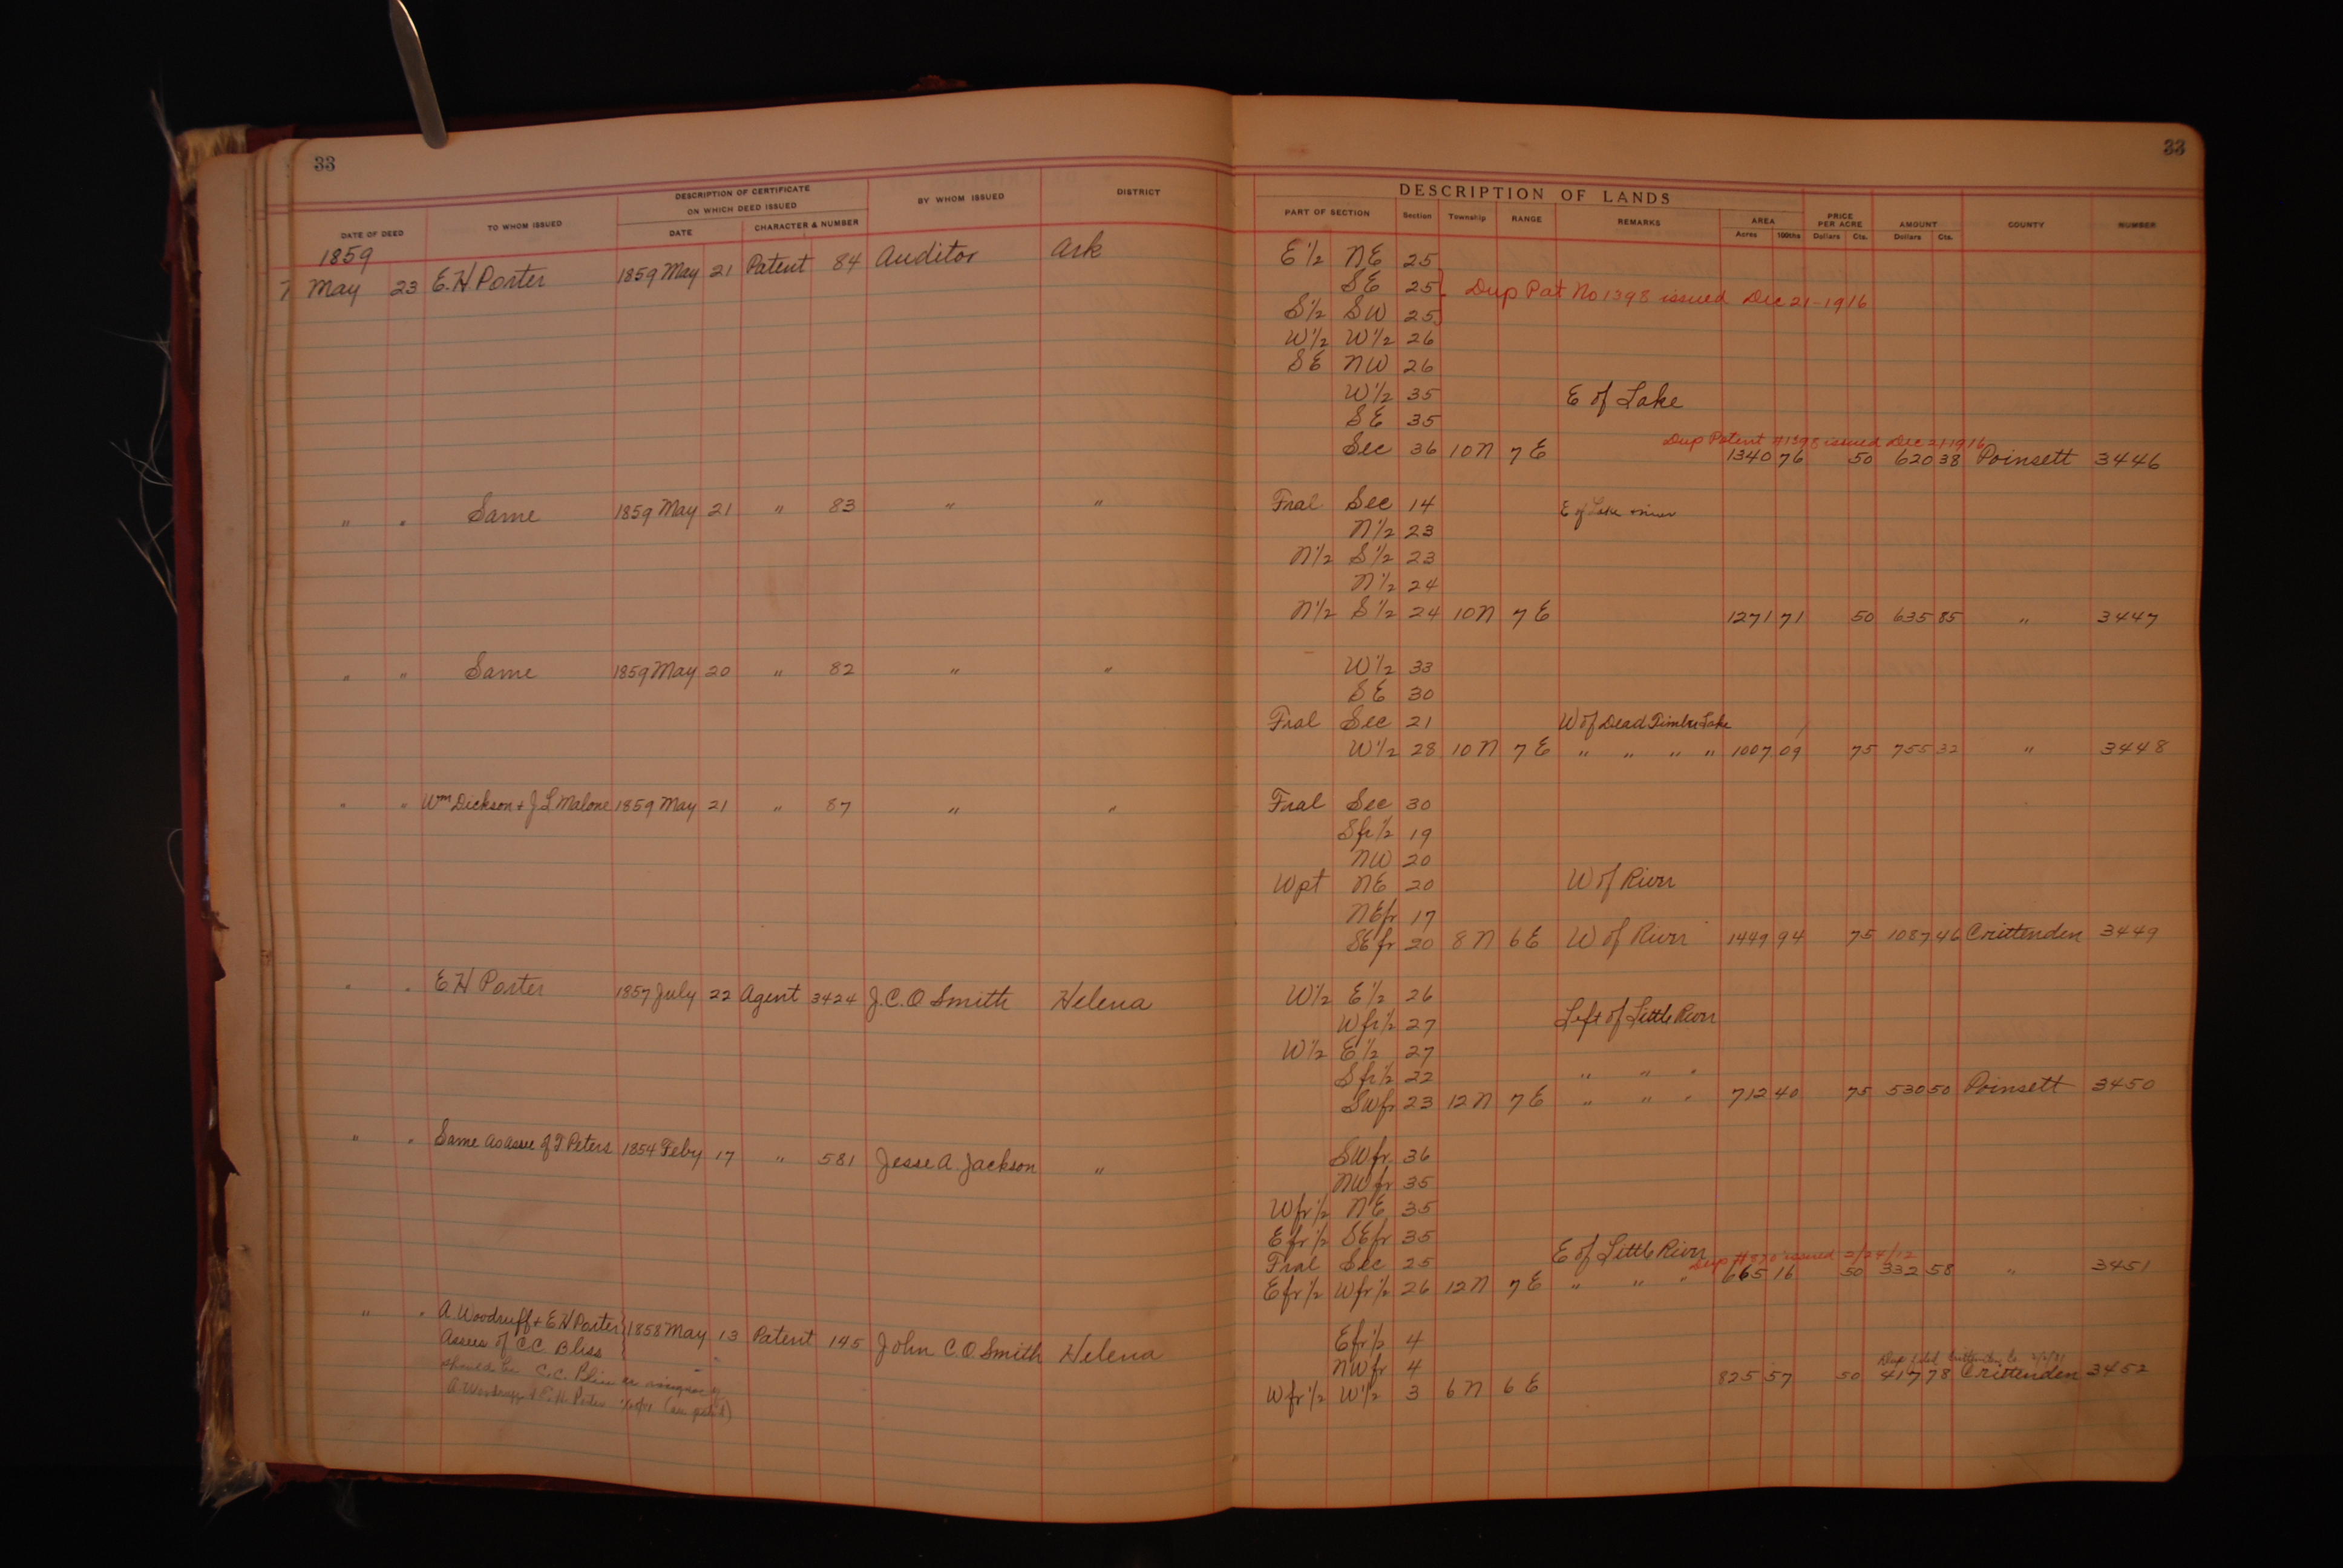 33
33
DESCRIPTION OF CERTIFICATE
ON WHICH DEED ISSUED
BY WHOM ISSUED
DISTRICT
DESCRIPTION OF LANDS
DATE OF DEED
TO WHOM ISSUED
DATE
CHARACTER & NUMBER
PART OF SECTION
Section
Township
RANGE
REMARKS
AREA
Acres
100ths
PRICE PER ACRE
Dollars
Cts.
AMOUNT
Dollars
Cts.
COUNTY
NUMBER
1859
7 May 23 E. H Porter 1859 May 21 Patent 84 Auditor Ark E 1/2 NE 25
SE 25 Dup Pat No 1398 issued Dec 21-1916
S 1/2 SW 25
W 1/2 W 1/2 26
SE NW 26
W 1/2 35 E of Lake
SE 35
Dup Patent #1398 issued Dec 21 1916
Sec 36 10 N 7 E 1340 76 50 620 38 Poinsett 3446
" " Same 1859 May 21 " 83 " " Fral Sec 14 E of Lake
N 1/2 23
N 1/2 S 1/2 23
N 1/2 24
N 1/2 S 1/2 24 10 N 7 E 1271 71 50 635 85 " 3447
" " Same 1859 May 20 " 82 " " W 1/2 33
SE 30
Fral Sec 21 W of Dead Timber Lake
W 1/2 28 10 N 7 E " " " " 1007 09 75 755 32 " 3448
" " Wm Dickson + J. L Malone 1859 May 21 " 87 " " Fral Sec 30
S fr 1/2 19
NW 20
W pt NE 20 W of River
NE fr 17
SE fr 20 8 N 6 E W of River 1449 94 75 1087 46 Crittenden 3449
" " E. H Porter 1857 July 22 Agent 3424 J. C. O Smith Helena W 1/2 E 1/2 26
W fr 1/2 27 Left of Little River
W 1/2 E 1/2 27
S fr 1/2 22 " " "
SW fr 23 12 N 7 E " " " 712 40 75 530 50 Poinsett 3450
" " Same as Assee of T Peters 1854 Feby 17 " 581 Jesse A. Jackson " SW fr 36
NW fr 35
W fr 1/2 NE 35
E fr 1/2 SE fr 35
Fral Sec 25 E of Little River
Dup issued 2/24/12
E fr 1/2 W fr 1/2 26 12 N 7 E " " " 665 16 50 332 58 " 3451
" " A. Woodruff + E H Porter 1858 May 13 Patent 145 John C. O. Smith Helena E fr 1/2 4
Assees of C. C. Bliss NW fr 4
should be C. C. Bliss as assignee of
A. Woodruff & E. H. Porter
W fr 1/2 W 1/2 3 6 N 6 E 825 57 50 417 78 Crittenden 3452